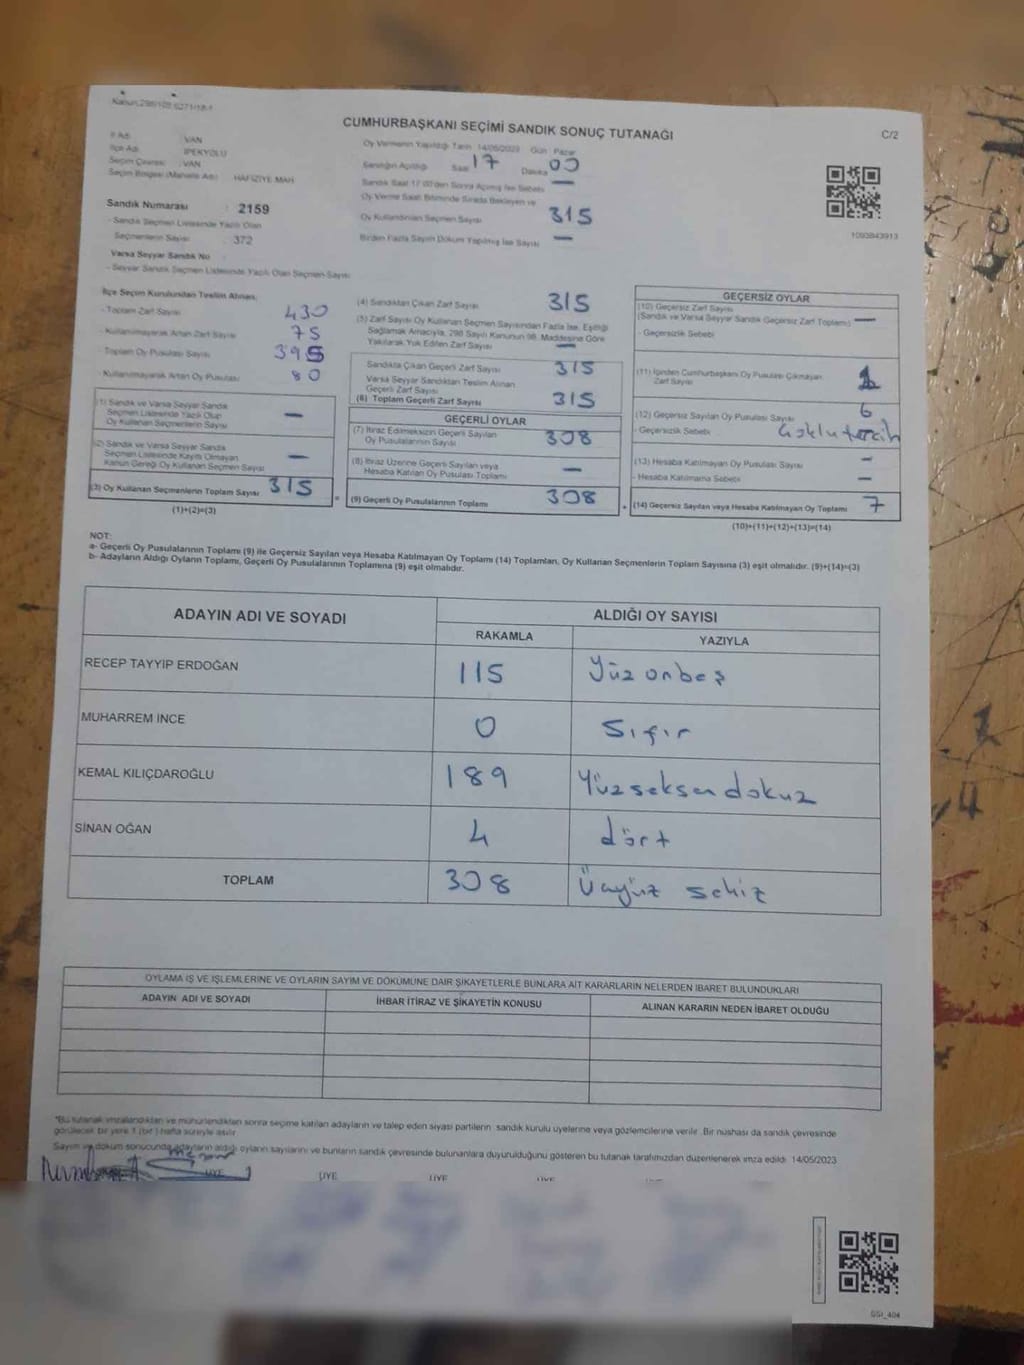 Kanun:298/105,6271/18-1
CUMHURBAŞKANI SEÇİMİ SANDIK SONUÇ TUTANAĞI
C/2
İl Adı : VAN
İlçe Adı : İPEKYOLU
Seçim Çevresi : VAN
Seçim Bölgesi (Mahalle Adı) : HAFİZİYE MAH
Sandık Numarası : 2159
- Sandık Seçmen Listesinde Yazılı Olan
Seçmenlerin Sayısı : 372
Varsa Seyyar Sandık No
- Seyyar Sandık Seçmen Listesinde Yazılı Olan Seçmen Sayısı
Oy Vermenin Yapıldığı Tarih 14/05/2023 Gün : Pazar
Sandığın Açıldığı Saat 17 Dakika 00
Sandık Saat 17:00'den Sonra Açılmış İse Sebebi —
Oy Verme Saati Bitiminde Sırada Bekleyen ve
Oy Kullandırılan Seçmen Sayısı 315
Birden Fazla Sayım Döküm Yapılmış İse Sayısı —
1093843913
İlçe Seçim Kurulundan Teslim Alınan;
- Toplam Zarf Sayısı 430
- Kullanılmayarak Artan Zarf Sayısı 75
- Toplam Oy Pusulası Sayısı 395
- Kullanılmayarak Artan Oy Pusulası 80
(1) Sandık ve Varsa Seyyar Sandık
Seçmen Listesinde Yazılı Olup
Oy Kullanan Seçmenlerin Sayısı —
(2) Sandık ve Varsa Seyyar Sandık
Seçmen Listesinde Kayıtlı Olmayan
Kanun Gereği Oy Kullanan Seçmen Sayısı —
(3) Oy Kullanan Seçmenlerin Toplam Sayısı 315
(1)+(2)=(3)
(4) Sandıktan Çıkan Zarf Sayısı 315
(5) Zarf Sayısı Oy Kullanan Seçmen Sayısından Fazla İse, Eşitliği
Sağlamak Amacıyla, 298 Sayılı Kanunun 98. Maddesine Göre
Yakılarak Yok Edilen Zarf Sayısı —
Sandıkta Çıkan Geçerli Zarf Sayısı 315
Varsa Seyyar Sandıktan Teslim Alınan
Geçerli Zarf Sayısı
(6) Toplam Geçerli Zarf Sayısı 315
GEÇERLİ OYLAR
(7) İtiraz Edilmeksizin Geçerli Sayılan
Oy Pusulalarının Sayısı 308
(8) İtiraz Üzerine Geçerli Sayılan veya
Hesaba Katılan Oy Pusulası Toplamı —
(9) Geçerli Oy Pusulalarının Toplamı 308
GEÇERSİZ OYLAR
(10) Geçersiz Zarf Sayısı
(Sandık ve Varsa Seyyar Sandık Geçersiz Zarf Toplamı) —
- Geçersizlik Sebebi
(11) İçinden Cumhurbaşkanı Oy Pusulası Çıkmayan
Zarf Sayısı 1
(12) Geçersiz Sayılan Oy Pusulası Sayısı 6
- Geçersizlik Sebebi : Çoklu tercih
(13) Hesaba Katılmayan Oy Pusulası Sayısı —
- Hesaba Katılmama Sebebi —
(14) Geçersiz Sayılan veya Hesaba Katılmayan Oy Toplamı 7
(10)+(11)+(12)+(13)=(14)
NOT:
a- Geçerli Oy Pusulalarının Toplamı (9) ile Geçersiz Sayılan veya Hesaba Katılmayan Oy Toplamı (14) Toplamları, Oy Kullanan Seçmenlerin Toplam Sayısına (3) eşit olmalıdır. (9)+(14)=(3)
b- Adayların Aldığı Oyların Toplamı, Geçerli Oy Pusulalarının Toplamına (9) eşit olmalıdır.
ADAYIN ADI VE SOYADI ALDIĞI OY SAYISI
RAKAMLA YAZIYLA
RECEP TAYYİP ERDOĞAN 115 Yüz onbeş
MUHARREM İNCE 0 Sıfır
KEMAL KILIÇDAROĞLU 189 Yüzseksendokuz
SİNAN OĞAN 4 dört
TOPLAM 308 Üçyüz sekiz
OYLAMA İŞ VE İŞLEMLERİNE VE OYLARIN SAYIM VE DÖKÜMÜNE DAİR ŞİKAYETLERLE BUNLARA AİT KARARLARIN NELERDEN İBARET BULUNDUKLARI
ADAYIN ADI VE SOYADI İHBAR İTİRAZ VE ŞİKAYETİN KONUSU ALINAN KARARIN NEDEN İBARET OLDUĞU
*Bu tutanak imzalandıktan ve mühürlendikten sonra seçime katılan adayların ve talep eden siyasi partilerin sandık kurulu üyelerine veya gözlemcilerine verilir. Bir nüshası da sandık çevresinde
görülecek bir yere 1 (bir) hafta süreyle asılır.
Sayım ve döküm sonucunda adayların aldığı oyların sayılarını ve bunların sandık çevresinde bulunanlara duyurulduğunu gösteren bu tutanak tarafımızdan düzenlenerek imza edildi. 14/05/2023
ÜYE ÜYE ÜYE ÜYE
GSI_404